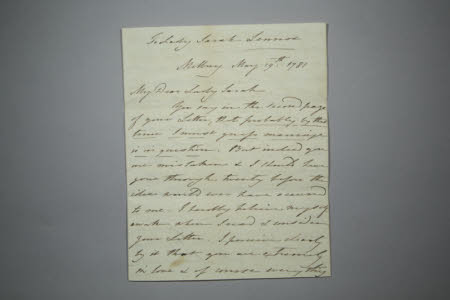 To Lady Sarah Lennox
May 19th 1781
My Dear Lady Sarah
You say in the second page
of your Letter, that probably by this
time I must guess marriage
is in question. But indeed you
are mistaken & I should have
gone through twenty before the
idea would ever have occurred
to me. I hardly believe myself
awake when I read & consider
your Letter. I perceive clearly
by it that you are extremely
in love & of course everything